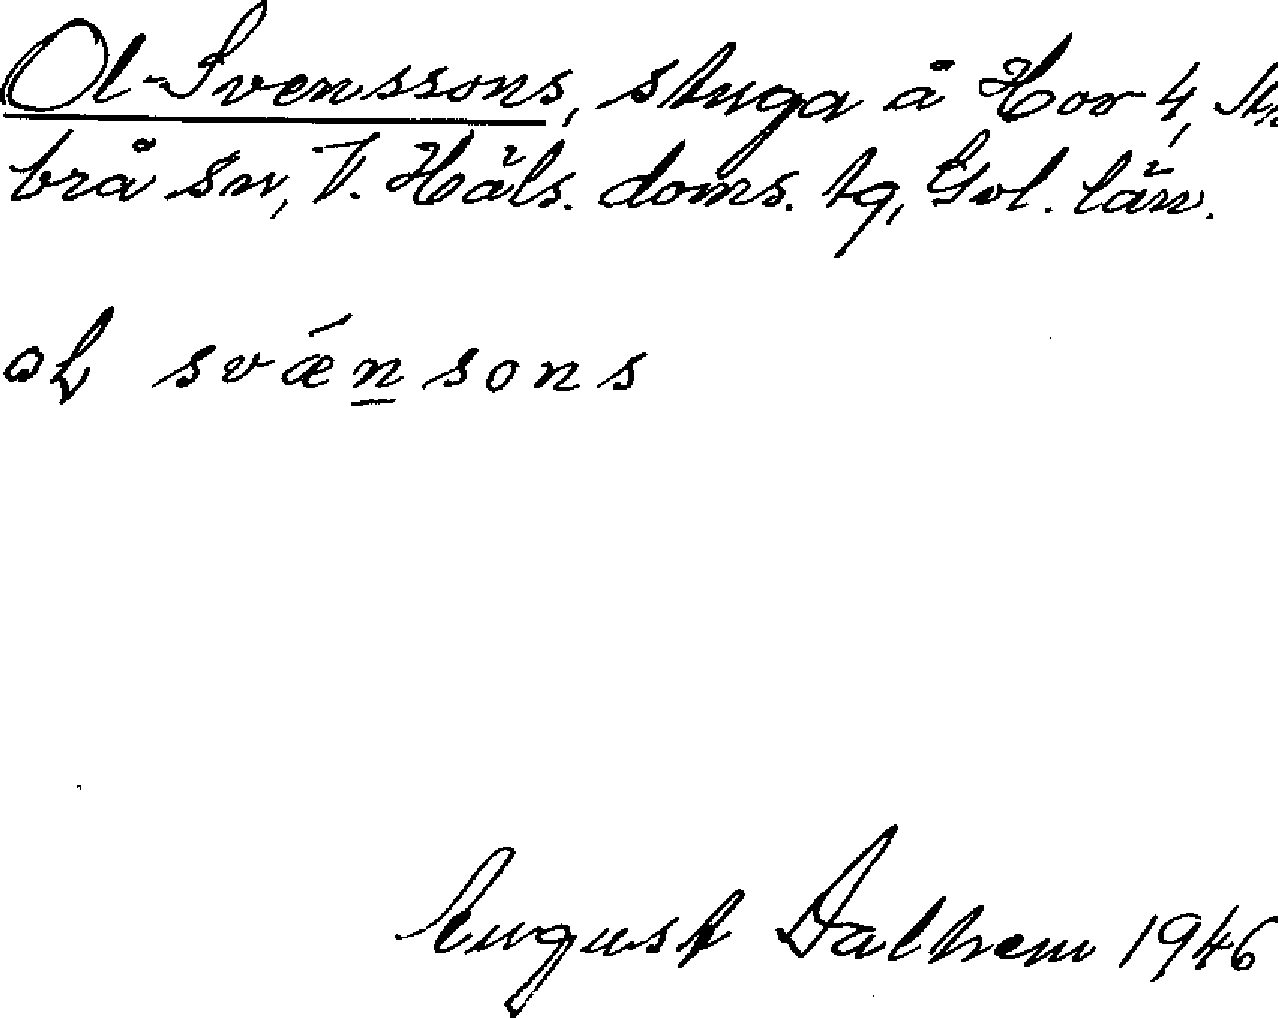 Ol-Svenssons, stuga å Hor 4,
brå sn, V. Häls. doms. tg, Gvl. län.
svǽnsons
August Dalhem 1946